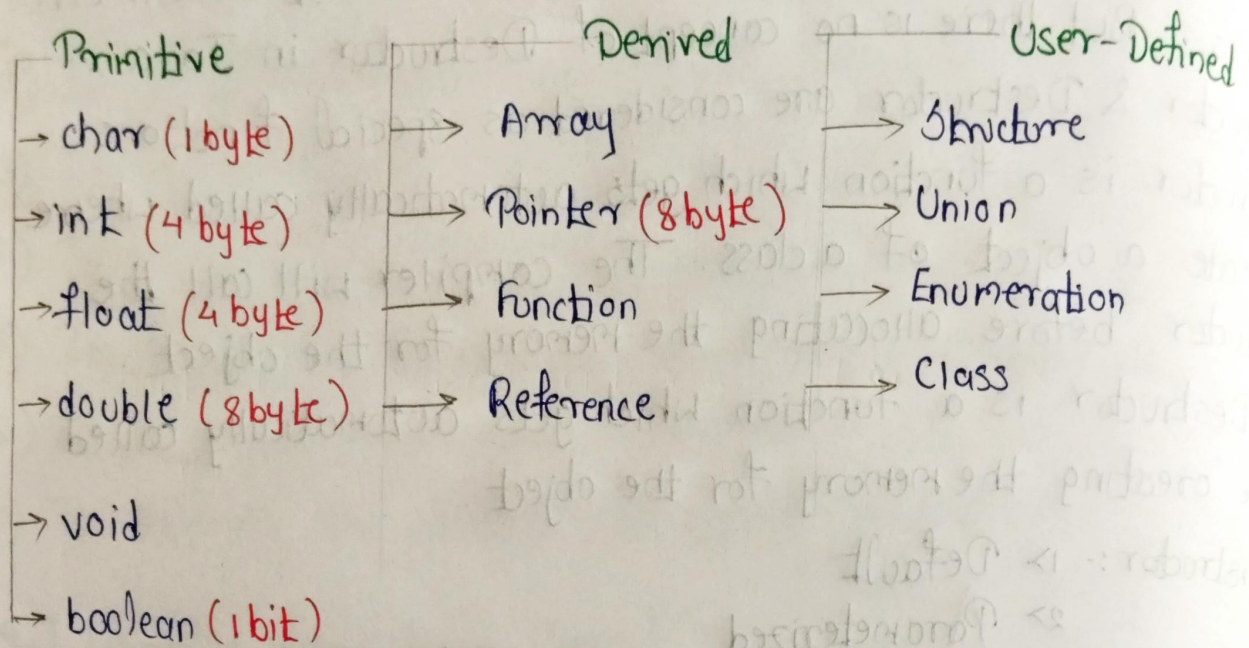 Primitive
char (1 byte)
int (4 byte)
float (4 byte)
double (8 byte)
void
boolean (1 bit)
Derived
Array
Pointer (8 byte)
Function
Reference
User-Defined
Structure
Union
Enumeration
Class